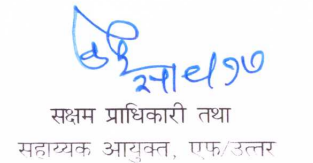 सक्षम प्राधिकारी तथा
सहाय्यक आयुक्त, एफ/उत्तर